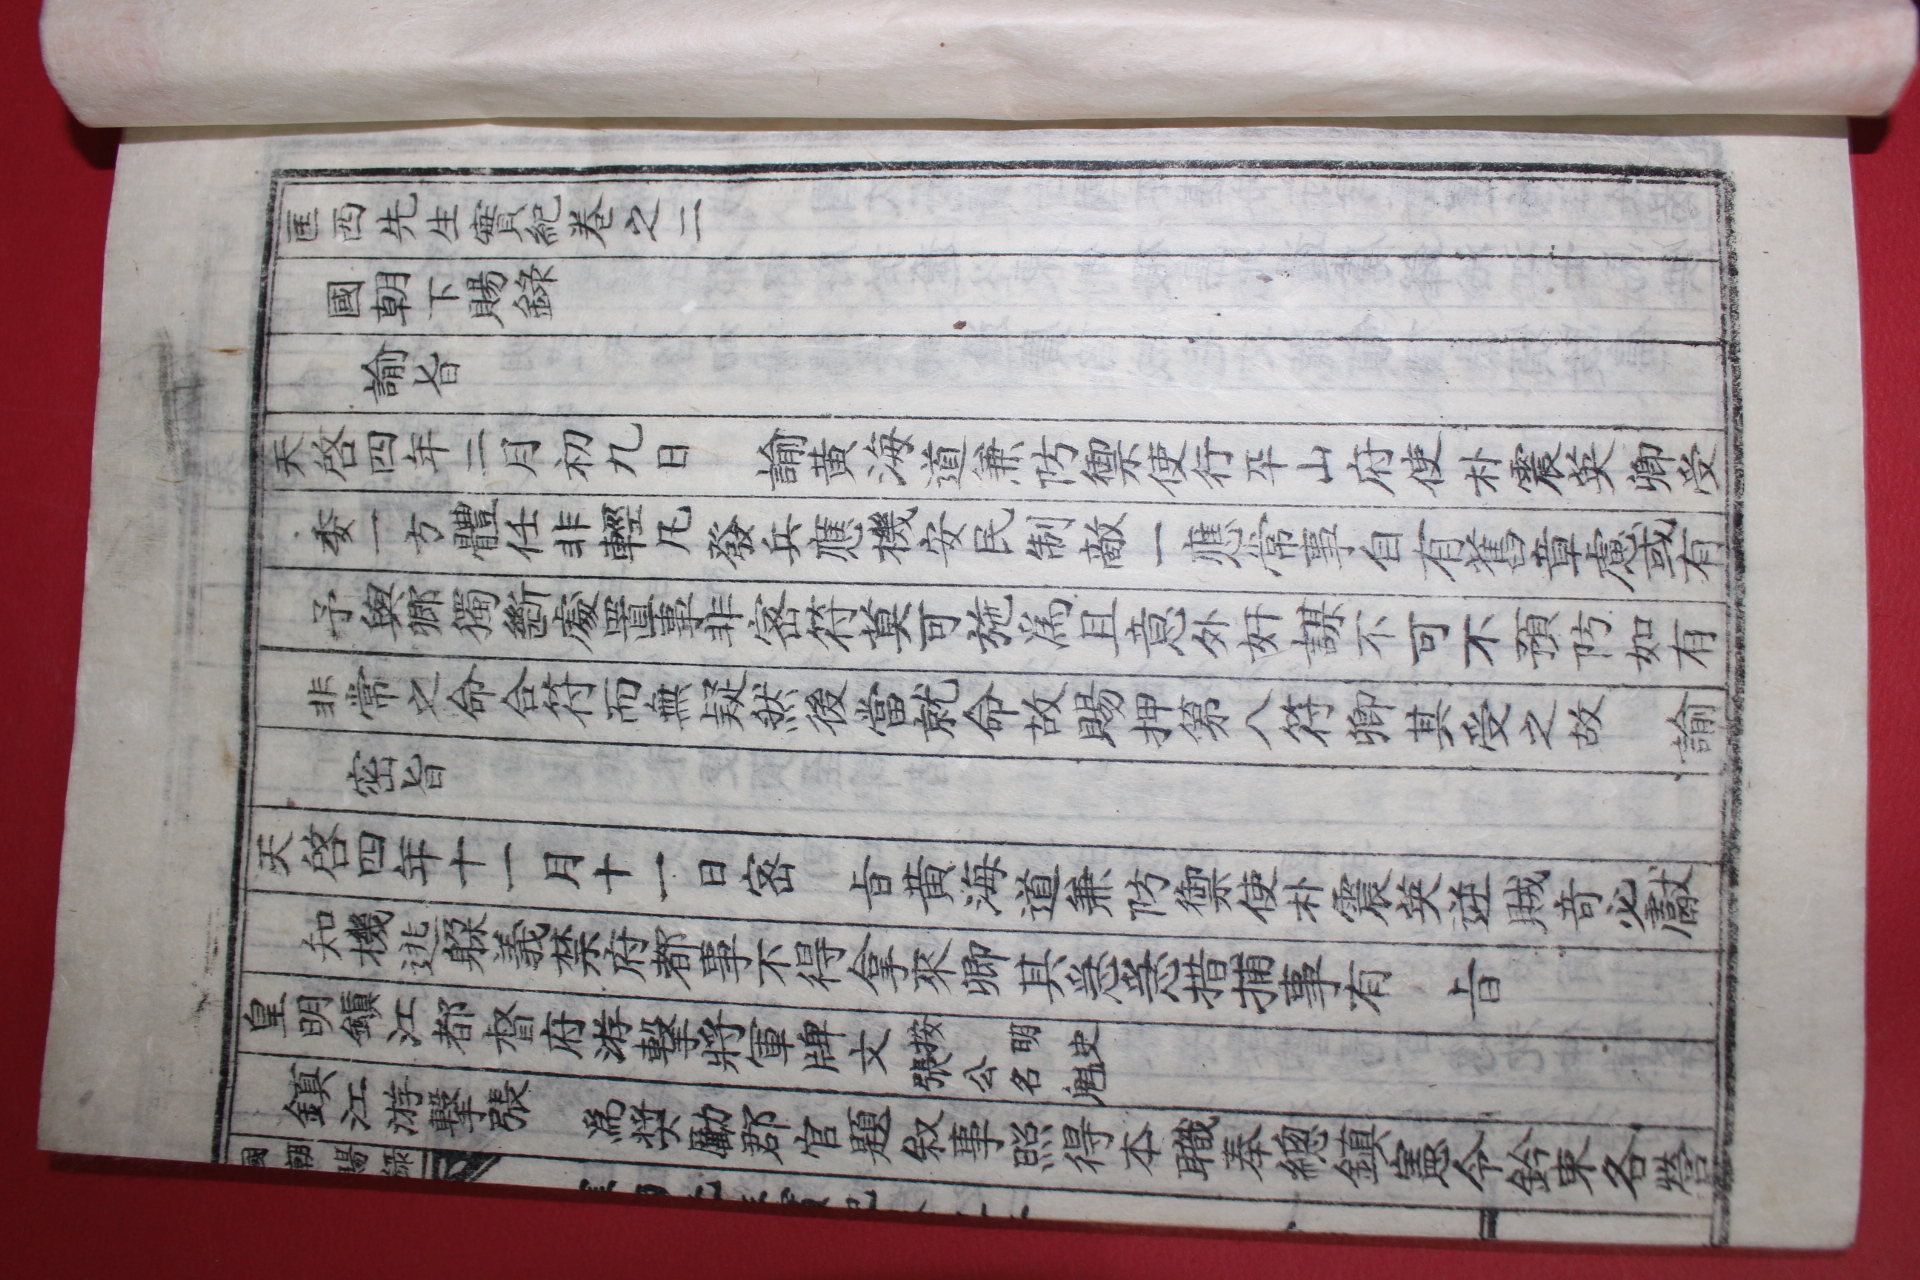 匡西先生實紀卷之二
國朝下賜錄
諭旨
天啓四年三月初九日 諭黃海道兼防禦使行平山府使朴震英卿受
委一方體任非輕凡發兵應機安民制敵一應常事自有舊章慮或有
予與卿獨斷處置事非密符莫可施爲且意外奸謀不可不預防如有
非常之命合符而無疑然後當就命故賜押第八符卿其受之故 諭
密旨
天啓四年十一月十一日密 旨黃海道兼防禦使朴震英逆賊奇必獻
知機逃躱義禁府都事不得拿來卿其悉悉措捕事有 旨
皇明鎭江都督府游擊將軍牌文 按明史張公名
鎭江游擊張 爲奬勵郡官題敘事照得本職奉總鎭憲令鈐束各營
國朝賜錄